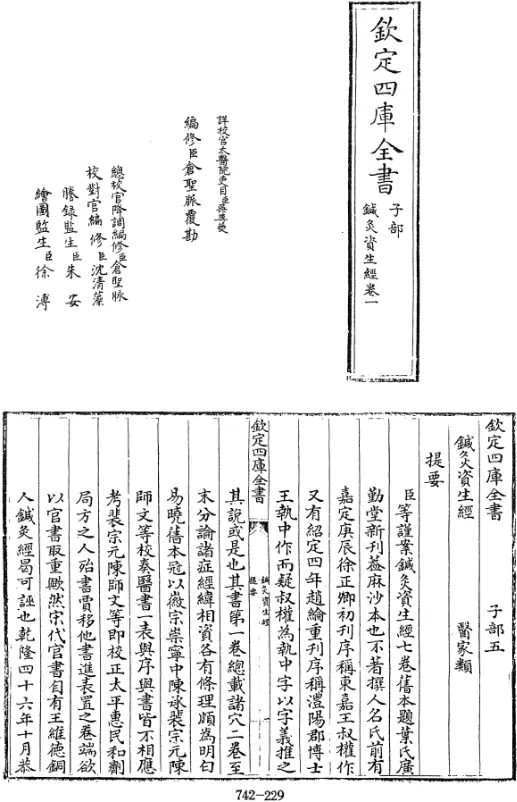 欽定四庫全書
子部
鍼灸資生經卷一
詳校官太醫院吏目臣
編修臣倉聖脈覆勘
總校官降調編修臣倉聖脈
校對官編修臣沈清藻
謄錄監生臣朱安
繪圖監生臣徐溥
欽定四庫全書 子部五
鍼灸資生經 醫家類
提要
臣等謹案鍼灸資生經七卷舊本題葉氏廣
勤堂新刊蓋麻沙本也不著撰人名氏前有
嘉定庚辰徐正卿初刊序稱東嘉王叔權作
又有紹定四年趙綸重刊序稱澧陽郡博士
王執中作而疑叔權為執中字以字義推之
欽定四庫全書
鍼灸資生經
提要
其說或是也其書第一卷總載諸穴二卷至
末分論諸症經緯相資各有條理頗為明白
易曉舊本冠以徽宗崇寧中陳承裴宗元陳
師文等校奏醫書一表與序與書皆不相應
考裴宗元陳師文等即校正太平惠民和劑
局方之人殆書賈移他書進表置之卷端欲
以官書取重歟然宋代官書自有王維德銅
人鍼灸經曷可誣也乾隆四十六年十月恭
742-229